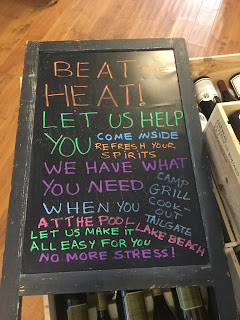 BEAT THE
HEAT!
LET US HELP
YOU COME INSIDE
REFRESH YOUR
SPIRITS
WE HAVE WHAT
YOU NEED CAMP
GRILL
WHEN YOU COOK-
OUT
AT THE POOL TAILGATE
LET US MAKE IT LAKE BEACH
ALL EASY FOR YOU
NO MORE STRESS!